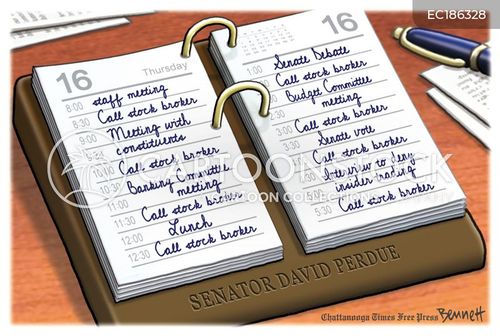 EC186328
16
Thursday
8:00 staff meeting
8:30 Call stock broker
9:00 Meeting with
constituents
Call stock broker
Banking Committee
meeting
11:30 Call stock broker
12:00 Lunch
12:30 Call stock broker
16
1:00 Senate Debate
Call stock broker
Budget Committee
meeting
3:00 Call stock broker
3:30 Senate vote
Call stock broker
Interview to deny
insider trading
5:30 Call stock broker
SENATOR DAVID PERDUE
CARTOONSTOCK
Chattanooga Times Free Press Bennett